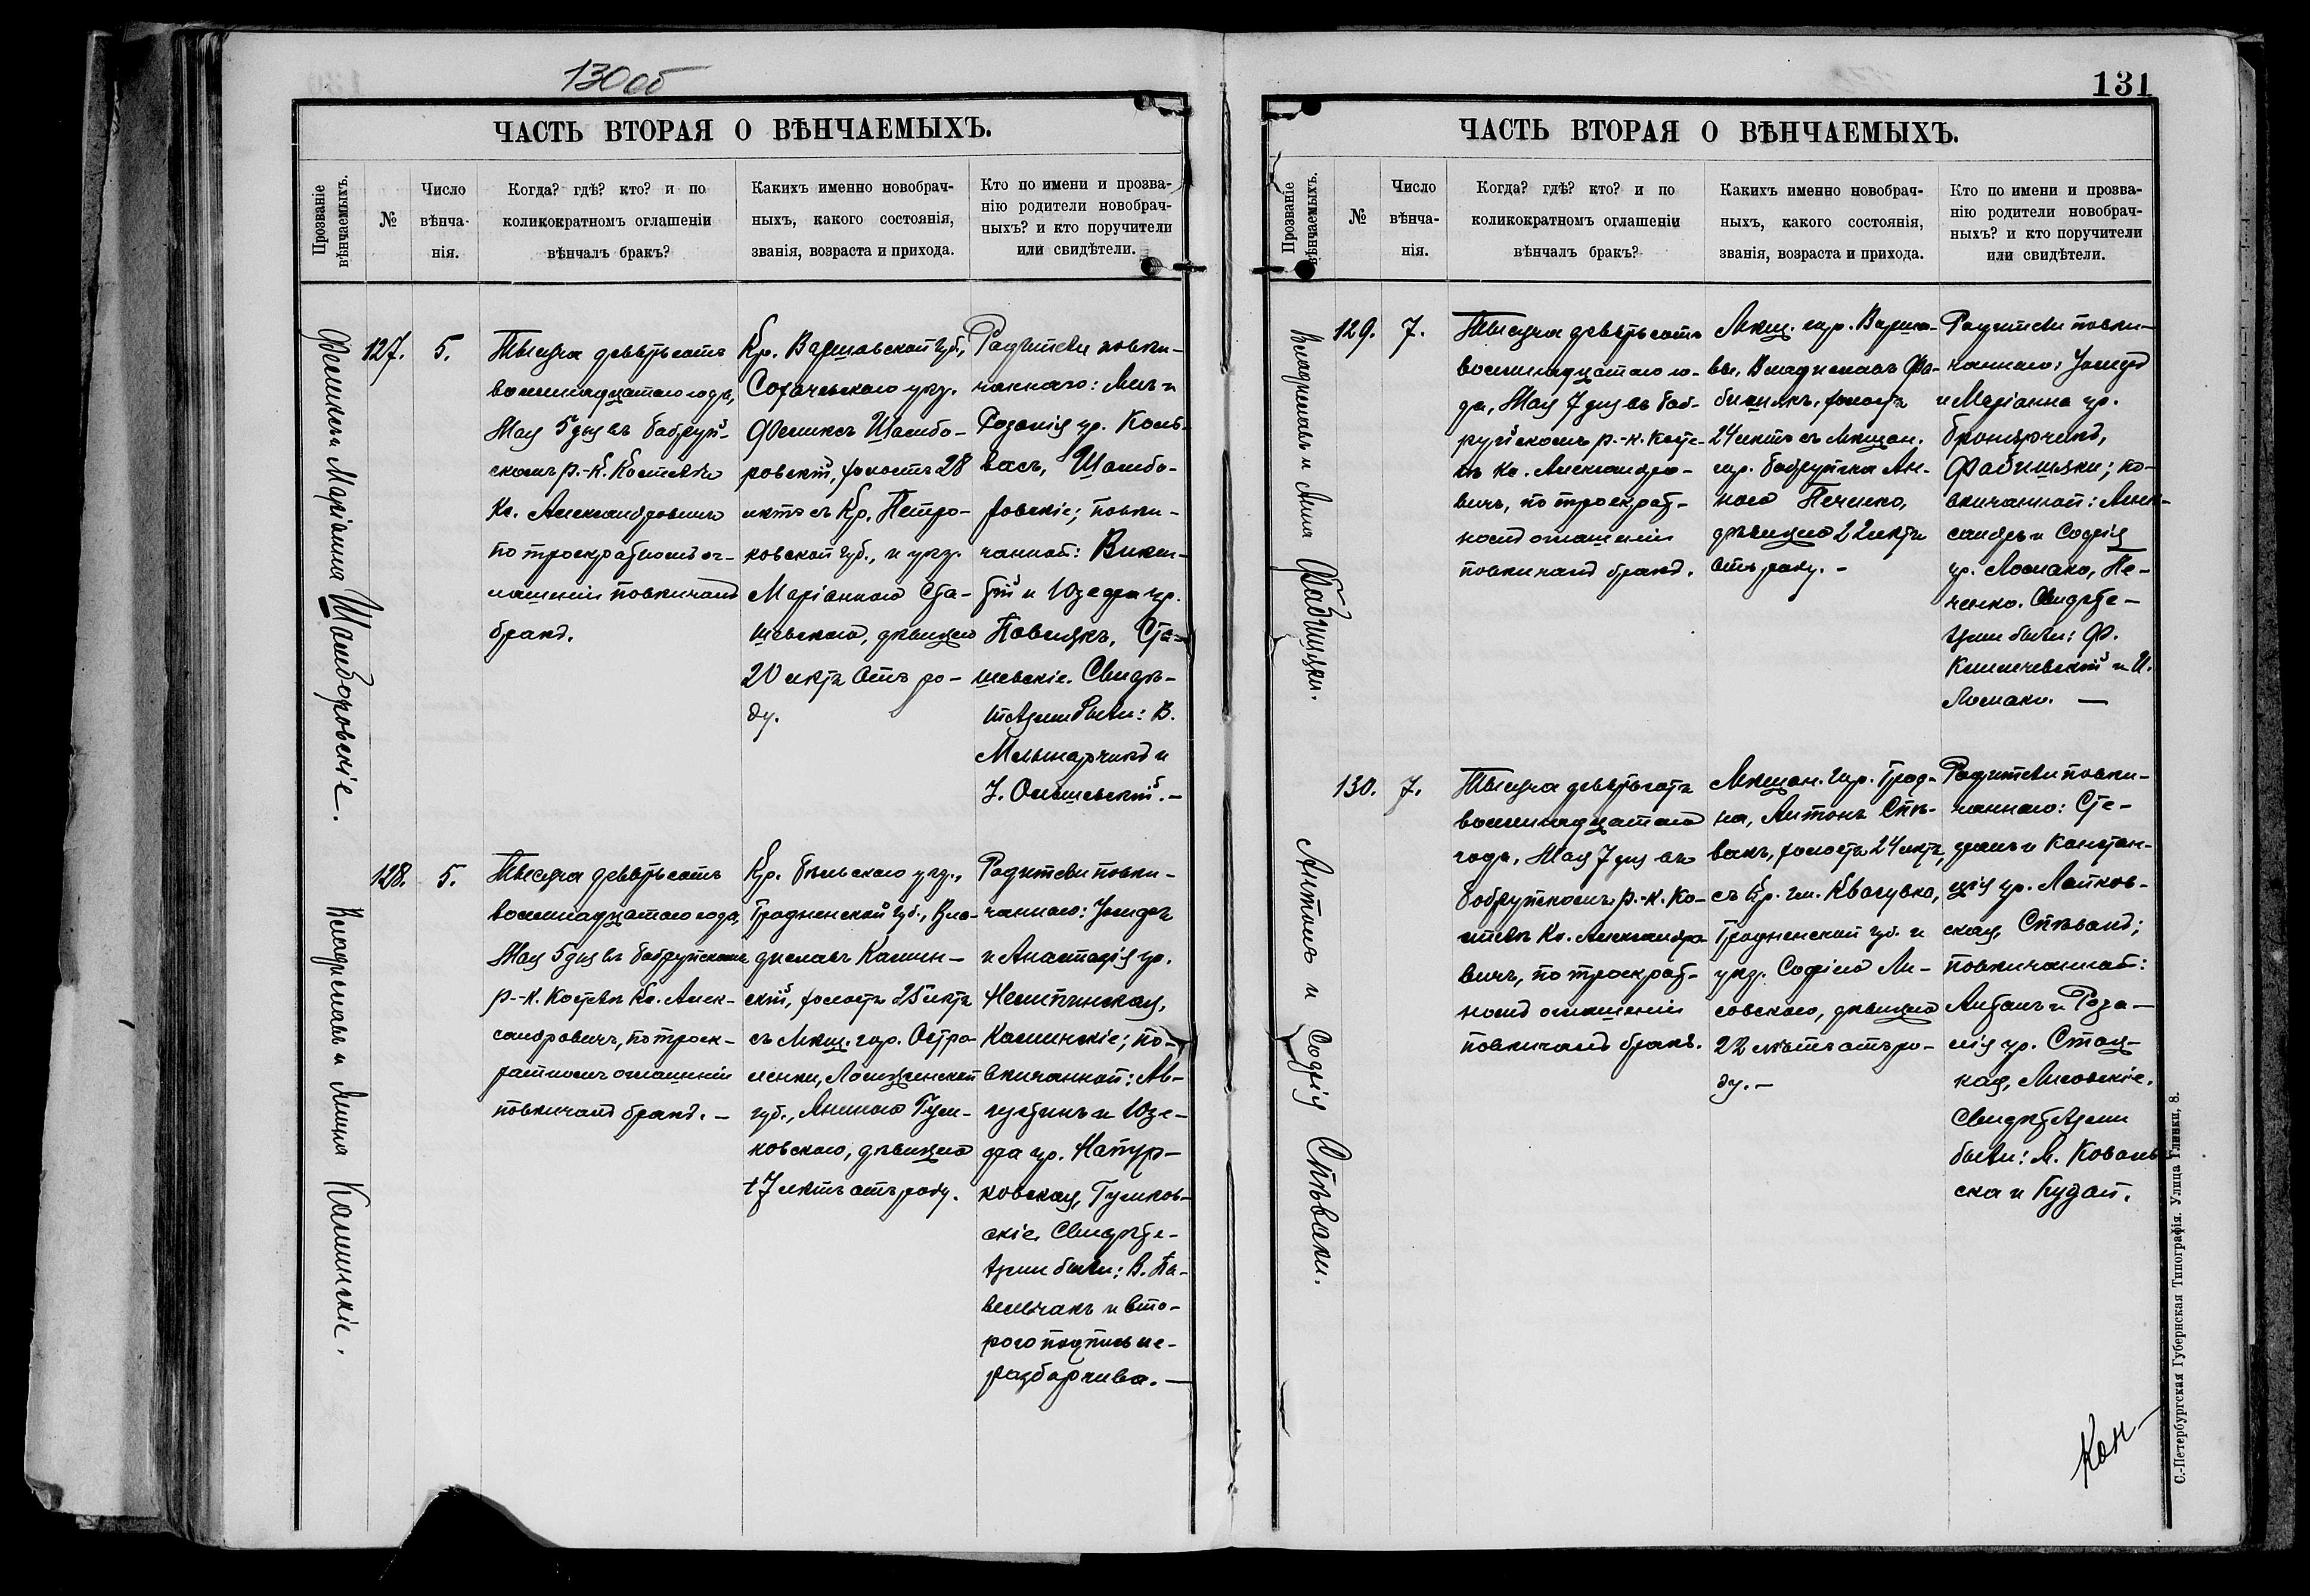 130 об
ЧАСТЬ ВТОРАЯ О ВѢНЧАЕМЫХЪ.
Прозваніе
вѣнчаемыхъ.
№
Число
вѣнча-
нія.
Когда? гдѣ? кто? и по
коликократномъ оглашеніи
вѣнчалъ бракъ?
Какихъ именно новобрач-
ныхъ, какого состоянія,
званія, возраста и прихода.
Кто по имени и прозва-
нію родители новобрач-
ныхъ? и кто поручители
или свидѣтели.
Феликсъ и Маріанна Шамборовскіе.
127.
5.
Тысяча девятьсотъ
восемнадцатаго года,
Мая 5 дня въ Бобруй-
скомъ р.-к. Костелѣ
Кс. Александровичъ
по троекратномъ ог-
лашеніи повѣнчалъ
бракъ.
Кр. Варшавской губ.,
Сохачевскаго уѣз.
Феликсъ Шамбо-
ровскій, холостъ 28
лѣтъ съ Кр. Петро-
ковской губ., и уѣз.
Маріанною Ста-
шевскою, дѣвицею
20 лѣтъ отъ ро-
ду.
Родители повѣн-
чаннаго:
Розалія ур.
Шамбо-
ровскіе; повѣн-
чанной: Викен-
тій и Юзефа ур.
Ста-
шевскіе. Свидѣ-
телями были: В.
Мельнарчикъ и
І. Ольшевскій.—
Владиславъ и Янина Каминскіе.
128.
5.
Тысяча девятьсотъ
восемнадцатаго года,
Мая 5 дня въ Бобруйскомъ
р.-к. Костелѣ Кс. Алек-
сандровичъ, по троек-
ратномъ оглашеніи
повѣнчалъ бракъ.—
Кр. Бѣльскаго уѣз.,
Гродненской губ., Вла-
диславъ Камин-
скій, холостъ 25 лѣтъ
съ Мѣщ. гор. Остро-
ленки, Ломжинской
губ., Яниною Гум-
ковскою, дѣвицею
17 лѣтъ отъ роду.
Родители повѣн-
чаннаго: Іосифъ
и Анастазія ур.
Каминскіе; по-
вѣнчанной: Ав-
густинъ и Юзе-
фа ур. Натур-
ковская, Гумков-
скіе. Свидѣте-
лями были: В. Па-
вельчакъ и вто-
рого подпись не-
разборчива.—
131
ЧАСТЬ ВТОРАЯ О ВѢНЧАЕМЫХЪ.
Прозваніе
вѣнчаемыхъ.
№
Число
вѣнча-
нія.
Когда? гдѣ? кто? и по
коликократномъ оглашеніи
вѣнчалъ бракъ?
Какихъ именно новобрач-
ныхъ, какого состоянія,
званія, возраста и прихода.
Кто по имени и прозва-
нію родители новобрач-
ныхъ? и кто поручители
или свидѣтели.
Владиславъ и Анна Фабишяки.
129.
7.
Тысяча девятьсотъ
восемнадцатаго го-
да, Мая 7 дня въ Боб-
руйскомъ р.-к. Косте-
лѣ Кс. Александро-
вичъ, по троекрат-
номъ оглашеніи
повѣнчалъ бракъ.
Мѣщ. гор. Варша-
вы, Владиславъ Фа-
бишякъ, холостъ
24 лѣтъ съ мѣщан.
гор. Бобруйска Ан-
ною Печенко,
дѣвицею 22 лѣтъ
отъ роду.—
Родители повѣн-
чаннаго: Іосифъ
и Маріанна ур.
Бронярчикъ,
Фабишяки; по-
вѣнчанной: Алек-
сандръ и Софія
ур. Ломако, Пе-
ченко. Свидѣте-
лями были: Ф.
Климчевскій и И.
Ломако.—
Антонъ и Софія Спѣваки.
130.
7.
Тысяча девятьсотъ
восемнадцатаго
года, Мая 7 дня въ
Бобруйскомъ р.-к. Ко-
стелѣ Кс. Александро
вичъ, по троекрат-
номъ оглашеніи
повѣнчалъ бракъ.
Мѣщан. гор. Грод-
на, Антонъ Спѣ-
вакъ, холостъ 24 лѣтъ,
съ Кр. им. Квасувка,
Гродненской губ. и
уѣз. Софіею Ли-
совскою, дѣвицею
22 лѣтъ отъ ро-
ду.—
Родители повѣн-
чаннаго: Сте-
фанъ и Констан-
ція ур. Лайков-
ская, Спѣвакъ;
повѣнчанной:
Антонъ и Роза-
лія ур. Стац-
кая, Лисовскіе.
Свидѣтелями
были: М. Коваль-
ска и Кудай.
Кон—
С.-Петербургская Губернская Типографія. Улица Глинки, 8.